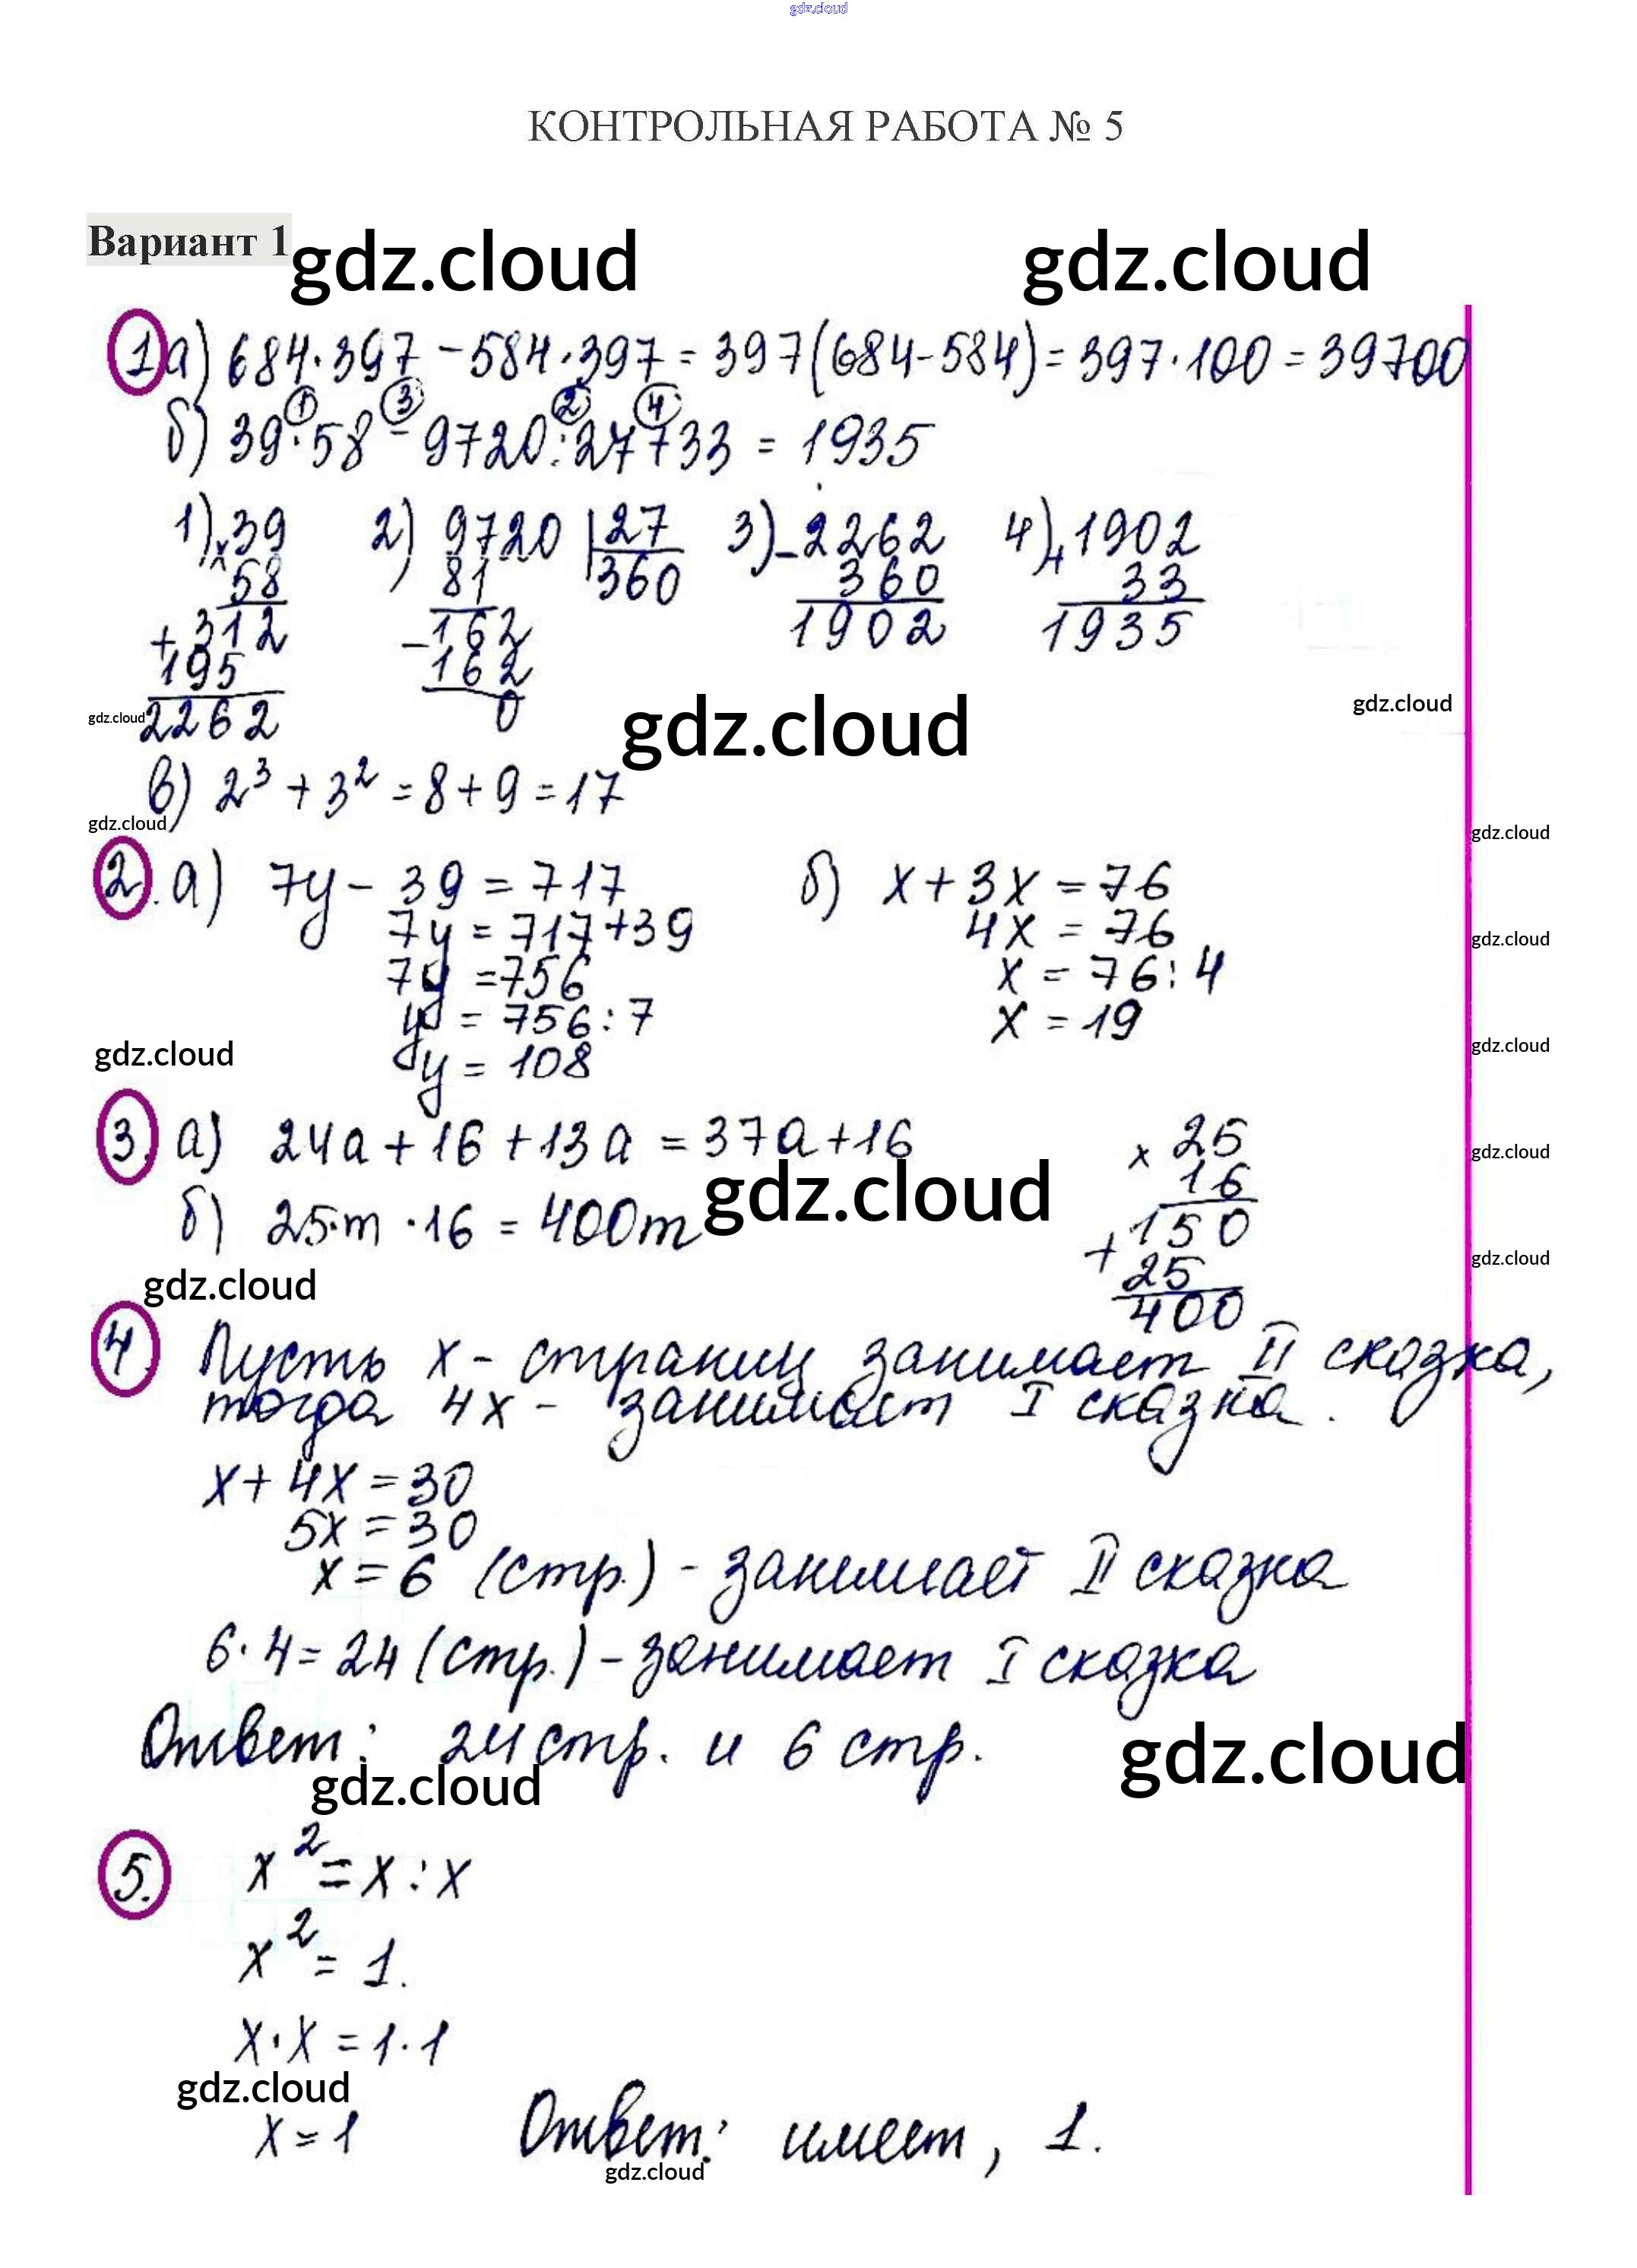 gdz.cloud
КОНТРОЛЬНАЯ РАБОТА № 5
Вариант 1
gdz.cloud gdz.cloud
1 а) 684·397 - 584·397 = 397(684-584) = 397·100 = 39700
① ③ ② ④
б) 39·58 - 9720:27+33 = 1935
1) 39 2) 9720 27 3) -2262 4) +1902
×58 81 360 360 33
+312 -162 1902 1935
195 162
gdz.cloud 2262 0 gdz.cloud gdz.cloud
в) 2³ + 3² = 8 + 9 = 17
gdz.cloud gdz.cloud
2. а) 7y - 39 = 717 б) x + 3x = 76
7y = 717+39 4x = 76
gdz.cloud
7y = 756 x = 76:4
y = 756:7 x = 19
gdz.cloud
gdz.cloud y = 108
3. а) 24a + 16 + 13a = 37a + 16 × 25
gdz.cloud
gdz.cloud 16
б) 25·m·16 = 400m +150
gdz.cloud
gdz.cloud 25
400
4. Пусть x - страниц занимает II сказка,
тогда 4x - занимает I сказка.
x + 4x = 30
5x = 30
x = 6 (стр.) - занимает II сказка
6·4 = 24 (стр.) - занимает I сказка
Ответ: 24 стр. и 6 стр. gdz.cloud
gdz.cloud
5. x² = x : x
x² = 1.
x·x = 1·1
gdz.cloud
x = 1 Ответ: имеет, 1.
gdz.cloud